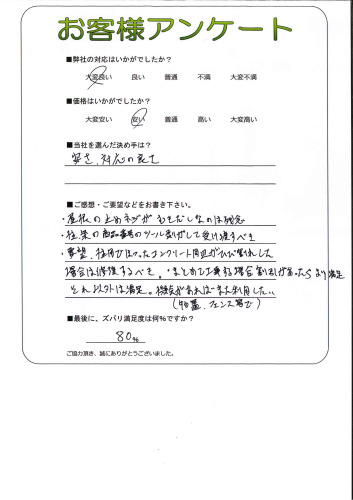 お客様アンケート
■弊社の対応はいかがでしたか?
大変良い 良い 普通 不満 大変不満
■価格はいかがでしたか?
大変安い 安い 普通 高い 大変高い
■当社を選んだ決め手は?
安さ、対応の良さ
■ご感想・ご要望などをお書き下さい。
・屋根の止めネジが むきだしなのは残念
・柱等の商品番号のシール剥がして受け渡すべき
・要望、柱用にほったコンクリート周辺が
場合は修復するべき。・まとめて工事する場合割引があったらより満足
それ以外は満足。機会があればまた利用したい。
(物置、フェンス等で)
■最後に、ズバリ満足度は何%ですか?
80%
ご協力頂き、誠にありがとうございました。